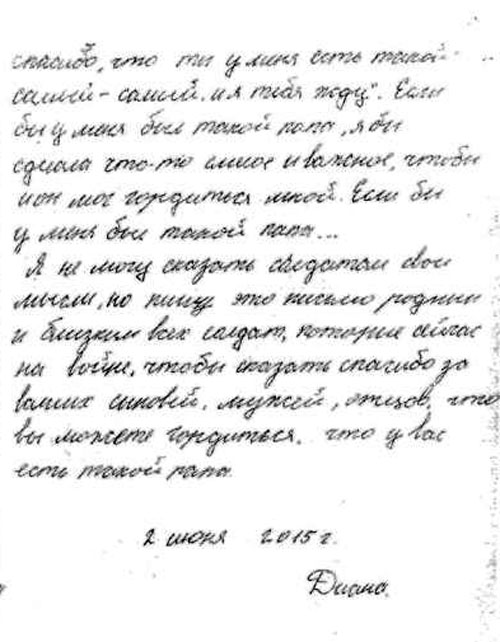 спасибо, что ты у меня есть такой
самый-самый. И я тебя жду". Если
бы у меня был такой папа, я бы
сделала что-то самое и важное, чтобы
и он мог гордиться мной. Если бы
у меня был такой папа...
Я не могу сказать солдатам свои
мысли, но пишу это письмо родным
и близким всех солдат, которые сейчас
на войне, чтобы сказать спасибо за
ваших сыновей, мужей, отцов, что
вы можете гордиться, что у вас
есть такой папа.
2 июня 2015 г.
Диана.